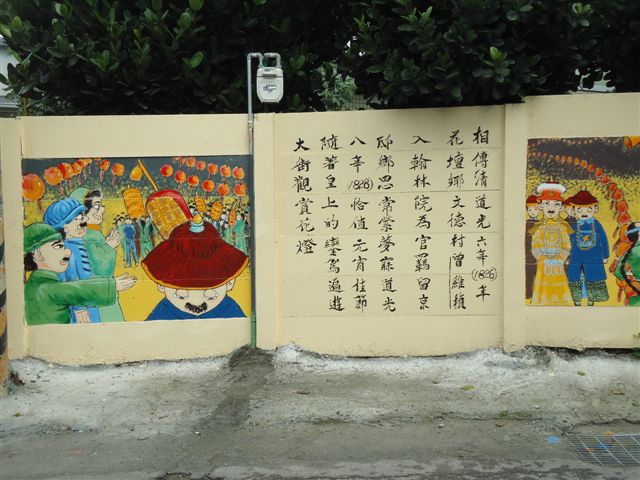 相傳清道光六年(1826)年
花壇鄉文德村曾維楨
入翰林院為官羈留京
邸鄉思常縈夢寐道光
八年(1828)恰值元宵佳節
隨著皇上的鑾駕遍遊
大街觀賞花燈